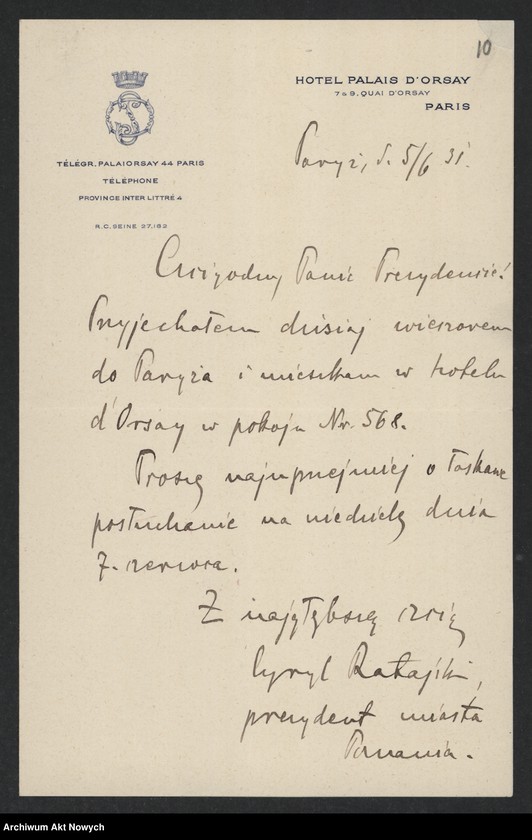 10
HOTEL PALAIS D'ORSAY
7 & 9. QUAI D'ORSAY
PARIS
TÉLÉGR. PALAIORSAY 44 PARIS
TÉLÉPHONE
PROVINCE INTER LITTRÉ 4
R.C. SEINE 27.182
Paryż, d. 5/6 31.
Czcigodny Panie Prezydencie!
Przyjechałem dzisiaj wieczorem
do Paryża i mieszkam w hotelu
d'Orsay w pokoju Nr. 568.
Proszę najuprzejmiej o łaskawe
posłuchanie na niedzielę dnia
7. czerwca.
Z najgłębszą czcią
Cyryl Ratajski,
prezydent miasta
Poznania.
Archiwum Akt Nowych